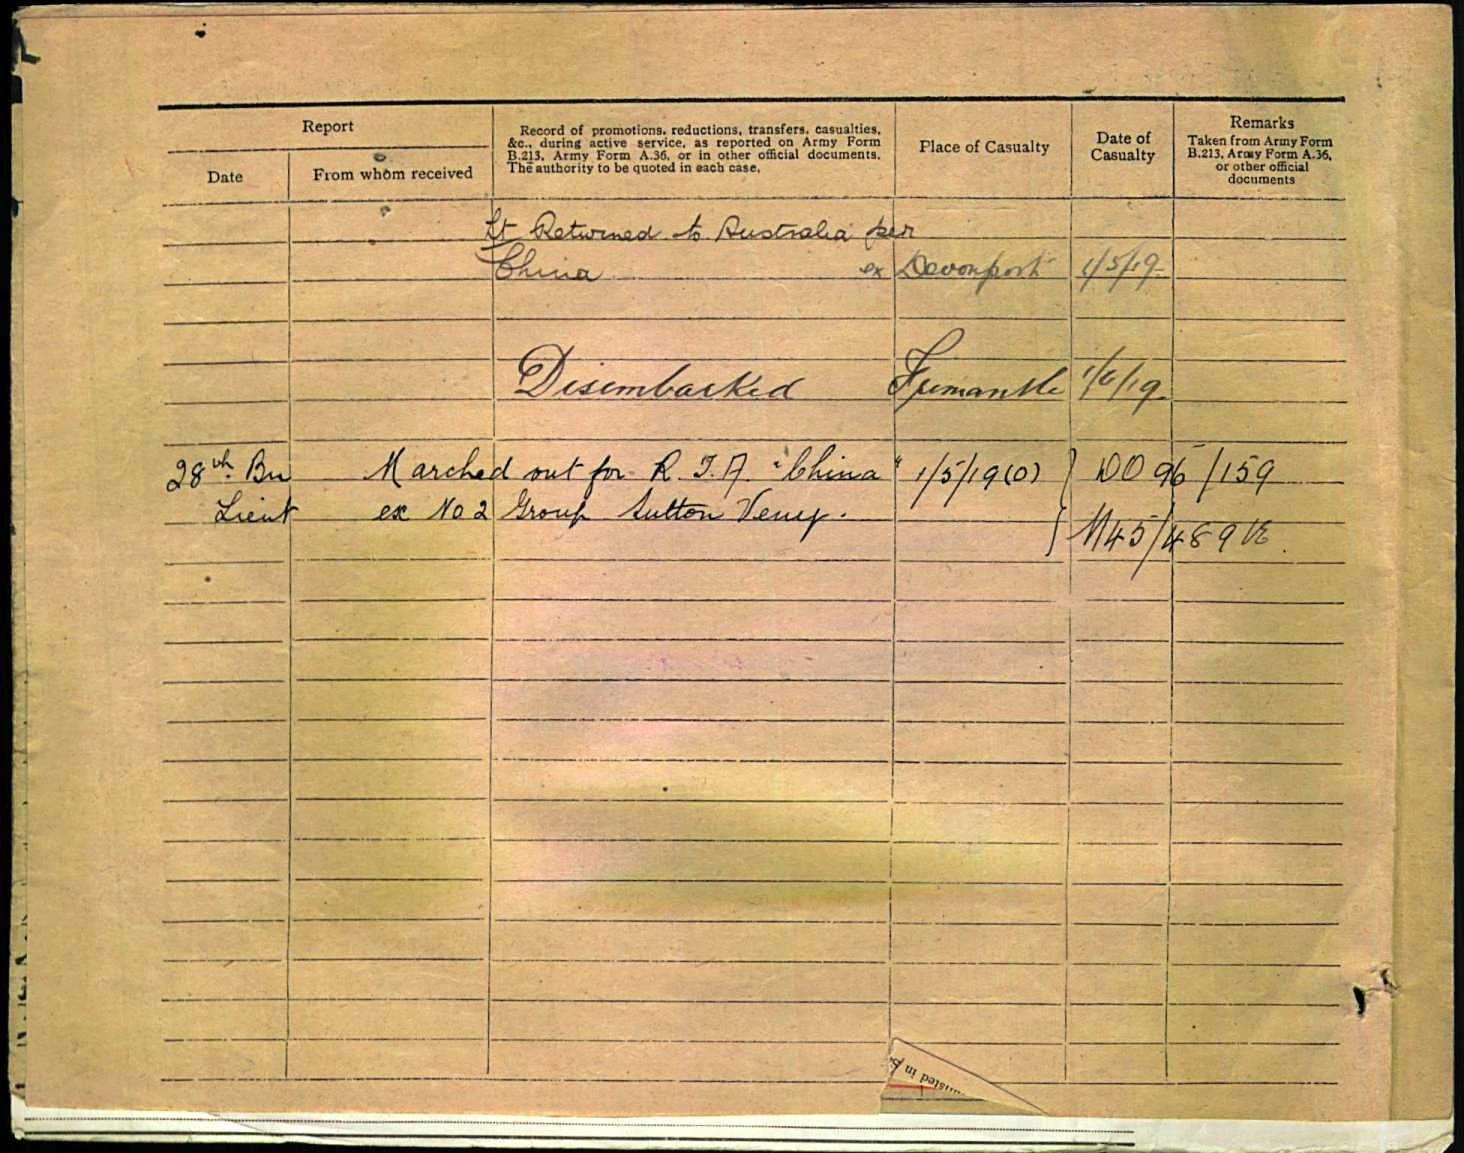 Report
Date
From whom received
Record of promotions, reductions, transfers, casualties,
&c., during active service, as reported on Army Form
B.213, Army Form A.36, or in other official documents.
The authority to be quoted in each case.
Place of Casualty
Date of
Casualty
Remarks
Taken from Army Form
B.213, Army Form A.36,
or other official
documents
Lt Returned to Australia per
China ex Devonport 1/5/19
Disembarked Fremantle 1/6/19
28th Bn Marched out for R.T.A. "China" 1/5/19 (O) DO 96/159
Lieut ex No 2 Group Sutton Veny.
M45/489